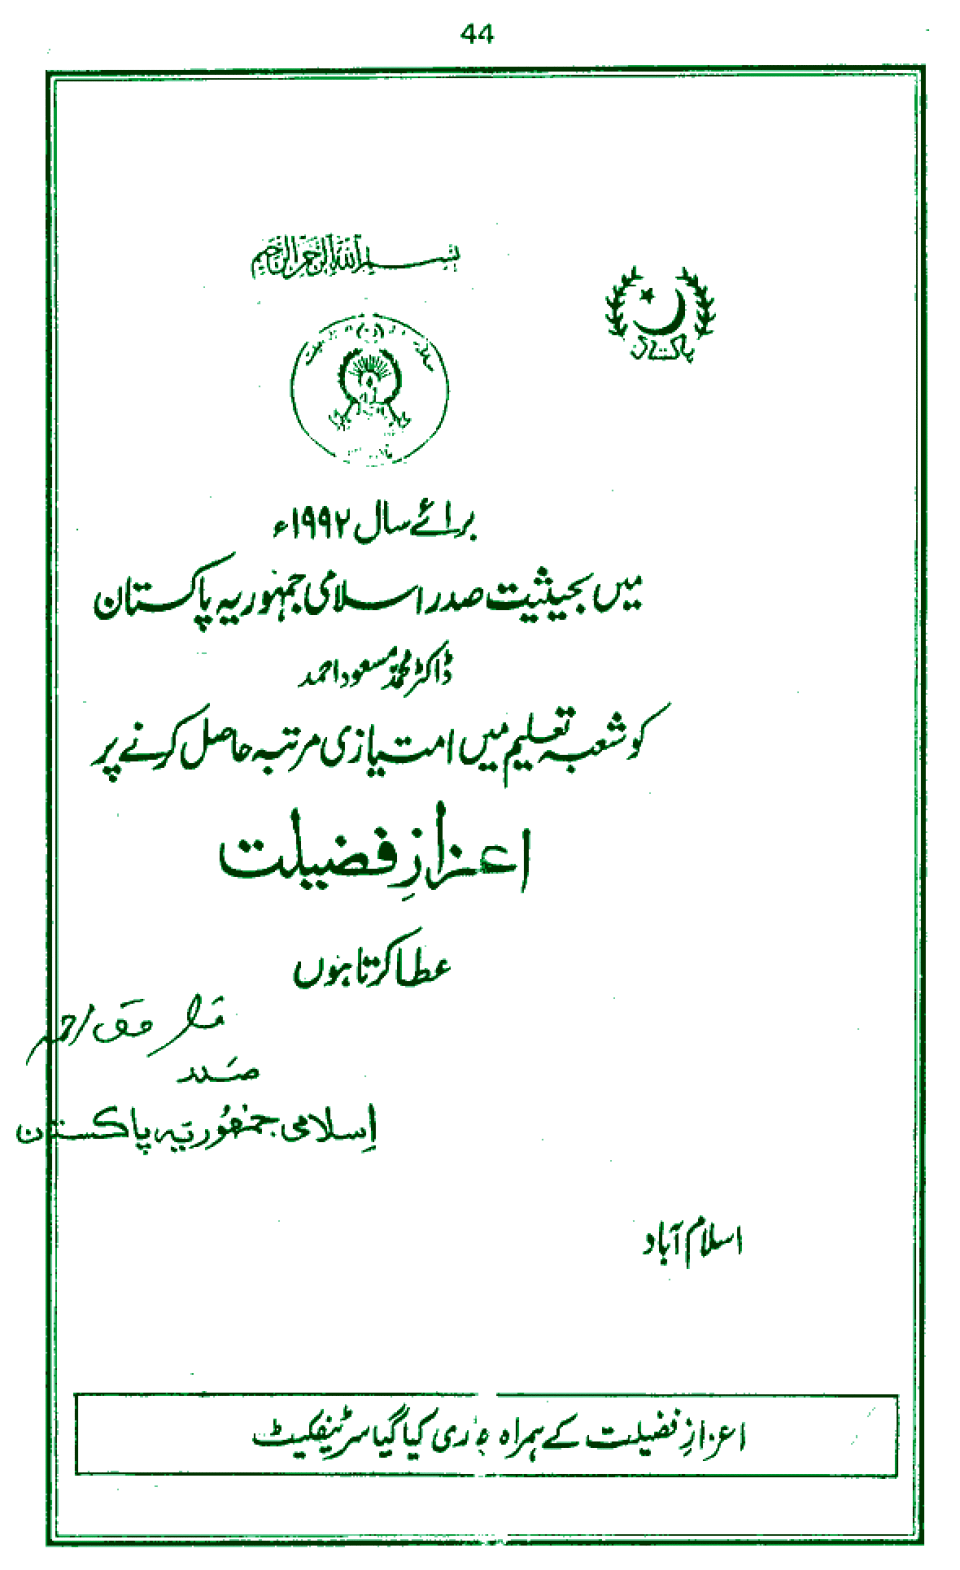 44
بسم الله الرحمن الرحیم
پاکستان
برائے سال ۱۹۹۲ء
میں بحیثیت صدر اسلامی جمہوریہ پاکستان
ڈاکٹر محمد مسعود احمد
کو شعبہ تعلیم میں امتیازی مرتبہ حاصل کرنے پر
اعزازِ فضیلت
عطا کرتا ہوں
صدر
اِسلامی جمہُوریّہ پاکستان
اسلام آباد
اعزازِ فضیلت کے ہمراہ جاری کیا گیا سرٹیفکیٹ